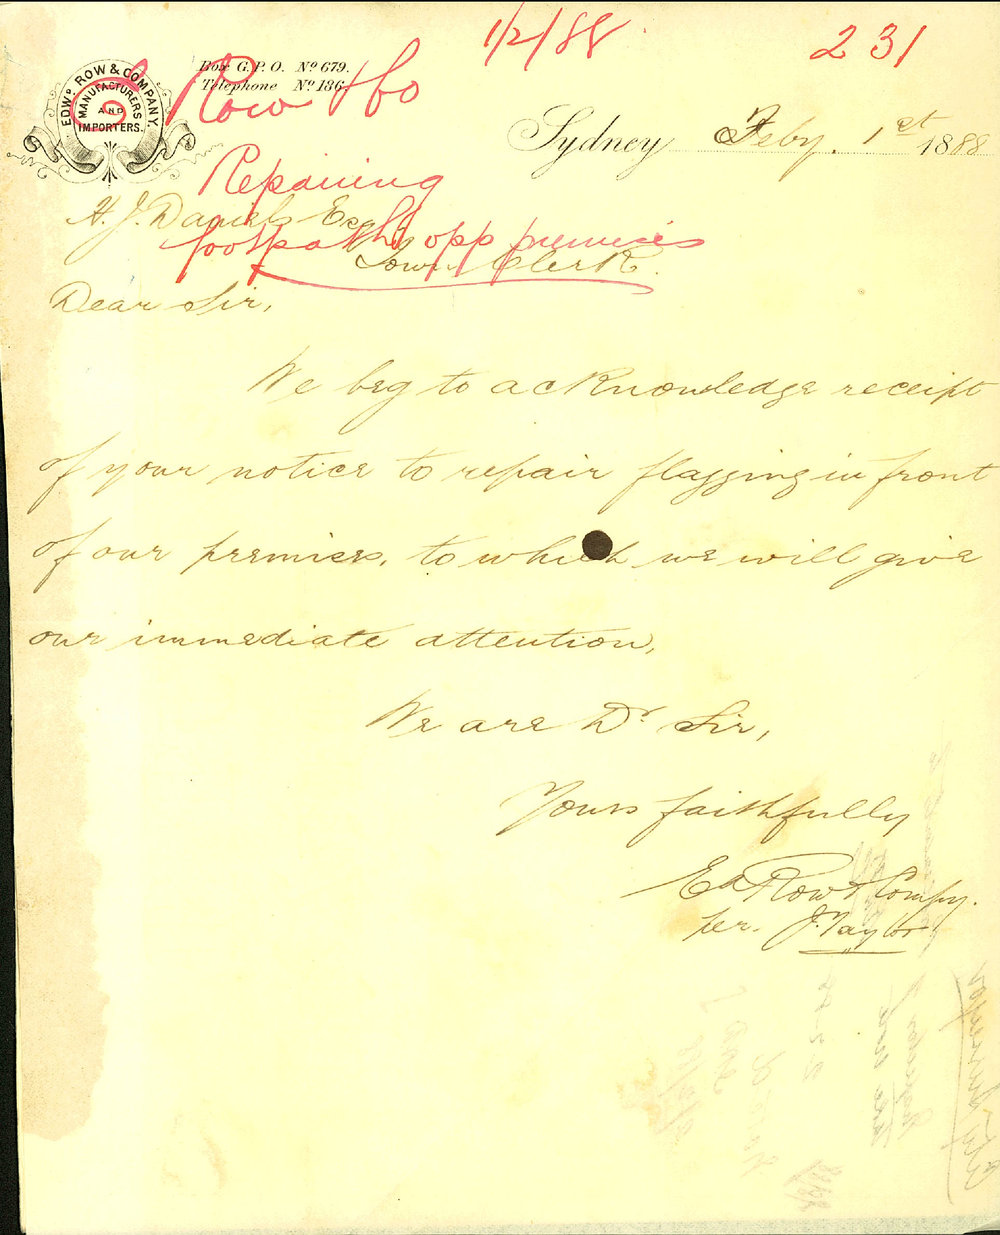 1/2/88 231
EDWD. ROW & COMPANY.
MANUFACTURERS
AND
IMPORTERS.
Box G.P.O. No 679.
Telephone No 186.
E Row & Co
Sydney Feby. 1st 1888
Repairing
H. J. Daniels Esq
footpaths opp premises
Town Clerk.
Dear Sir,
We beg to acknowledge receipt
of your notice to repair flagging in front
of our premises, to which we will give
our immediate attention,
We are Dr Sir,
Yours faithfully
Ed Row & Compy.
per. J. Taylor